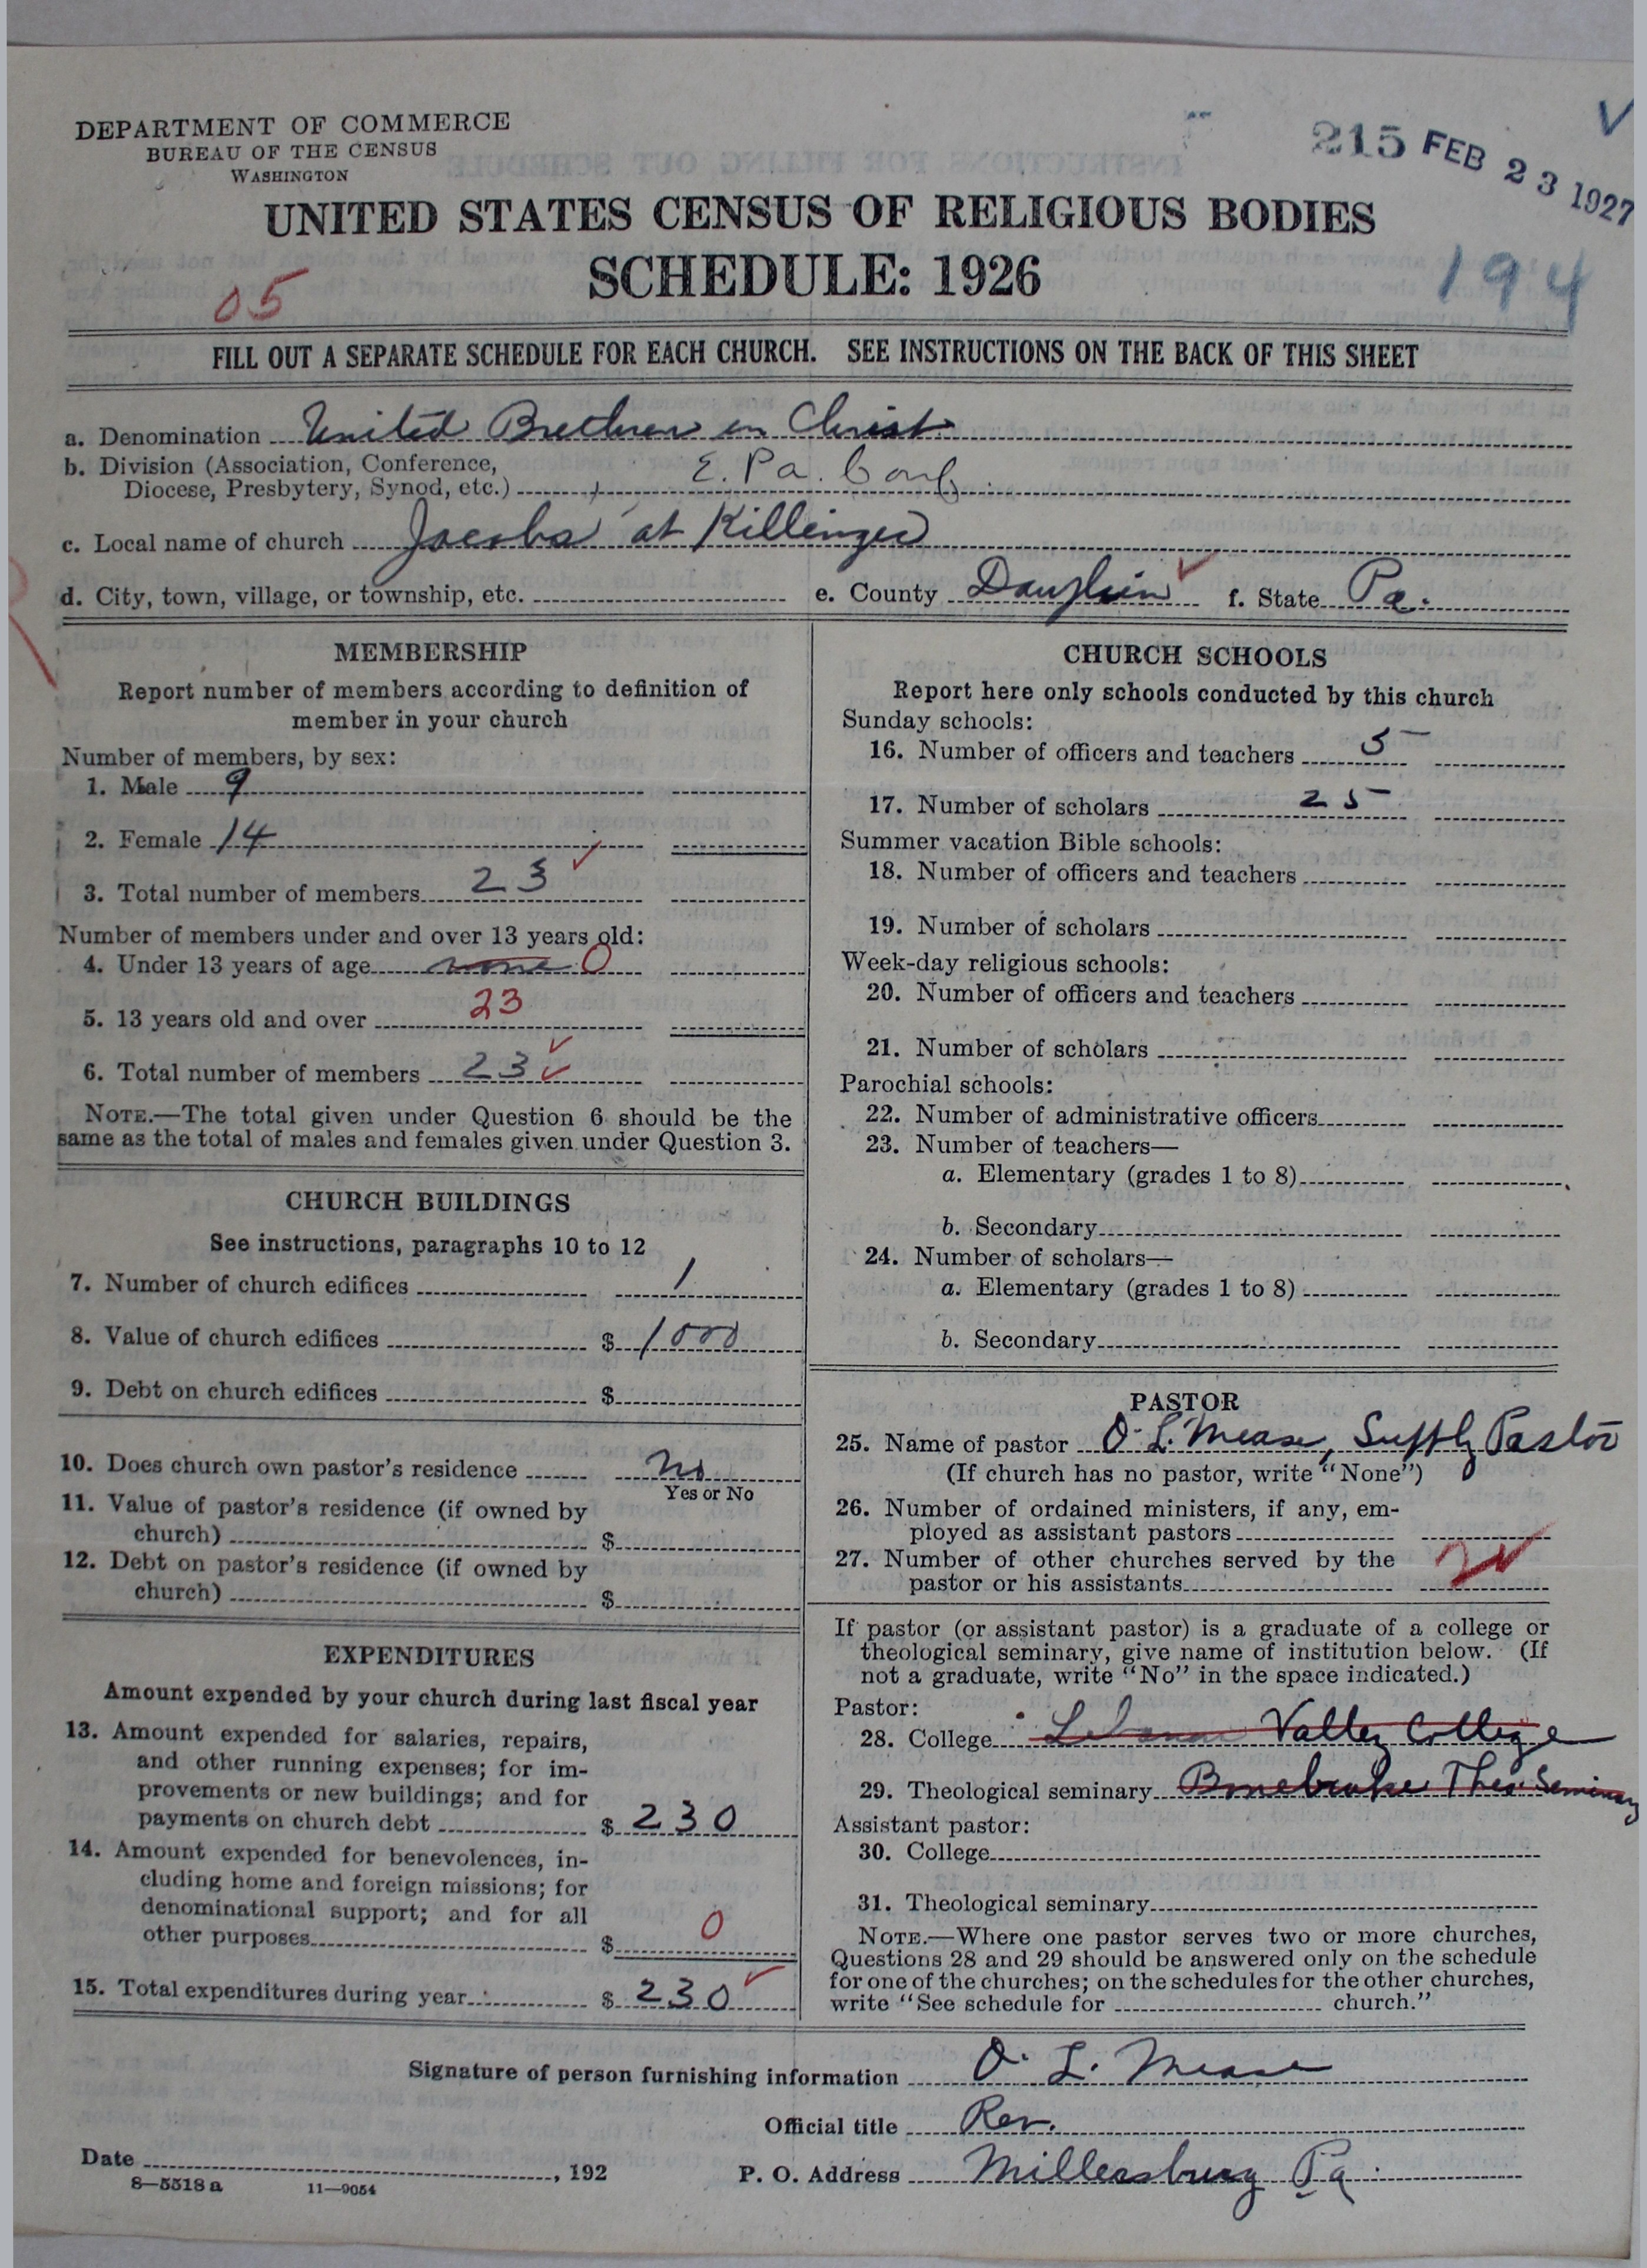 DEPARTMENT OF COMMERCE
BUREAU OF THE CENSUS
WASHINGTON
215 FEB 23 1927
UNITED STATES CENSUS OF RELIGIOUS BODIES
SCHEDULE: 1926
05
194
FILL OUT A SEPARATE SCHEDULE FOR EACH CHURCH. SEE INSTRUCTIONS ON THE BACK OF THIS SHEET
a. Denomination United Brethren in Christ
b. Division (Association, Conference,
Diocese, Presbytery, Synod, etc.) E. Pa. Conf.
c. Local name of church Jacobs at Killinger
d. City, town, village, or township, etc. e. County Dauphin f. State Pa.
MEMBERSHIP
Report number of members according to definition of
member in your church
Number of members, by sex:
1. Male 9
2. Female 14
3. Total number of members 23
Number of members under and over 13 years old:
4. Under 13 years of age none 0
5. 13 years old and over 23
6. Total number of members 23
NOTE.—The total given under Question 6 should be the
same as the total of males and females given under Question 3.
CHURCH BUILDINGS
See instructions, paragraphs 10 to 12
7. Number of church edifices 1
8. Value of church edifices $ 1000
9. Debt on church edifices $
10. Does church own pastor's residence no
Yes or No
11. Value of pastor's residence (if owned by
church) $
12. Debt on pastor's residence (if owned by
church) $
EXPENDITURES
Amount expended by your church during last fiscal year
13. Amount expended for salaries, repairs,
and other running expenses; for im-
provements or new buildings; and for
payments on church debt $ 230
14. Amount expended for benevolences, in-
cluding home and foreign missions; for
denominational support; and for all
other purposes $ 0
15. Total expenditures during year $ 230
CHURCH SCHOOLS
Report here only schools conducted by this church
Sunday schools:
16. Number of officers and teachers 5
17. Number of scholars 25
Summer vacation Bible schools:
18. Number of officers and teachers
19. Number of scholars
Week-day religious schools:
20. Number of officers and teachers
21. Number of scholars
Parochial schools:
22. Number of administrative officers
23. Number of teachers—
a. Elementary (grades 1 to 8)
b. Secondary
24. Number of scholars—
a. Elementary (grades 1 to 8)
b. Secondary
PASTOR
25. Name of pastor O. L. Mease, Supply Pastor
(If church has no pastor, write "None")
26. Number of ordained ministers, if any, em-
ployed as assistant pastors
27. Number of other churches served by the
pastor or his assistants 2
If pastor (or assistant pastor) is a graduate of a college or
theological seminary, give name of institution below. (If
not a graduate, write "No" in the space indicated.)
Pastor:
28. College Lebanon Valley College
29. Theological seminary Bonebrake Theo. Seminary
Assistant pastor:
30. College
31. Theological seminary
NOTE.—Where one pastor serves two or more churches,
Questions 28 and 29 should be answered only on the schedule
for one of the churches; on the schedules for the other churches,
write "See schedule for church."
Signature of person furnishing information O. L. Mease
Official title Rev.
Date , 192
P. O. Address Millersburg Pa.
8—5518 a 11—9054